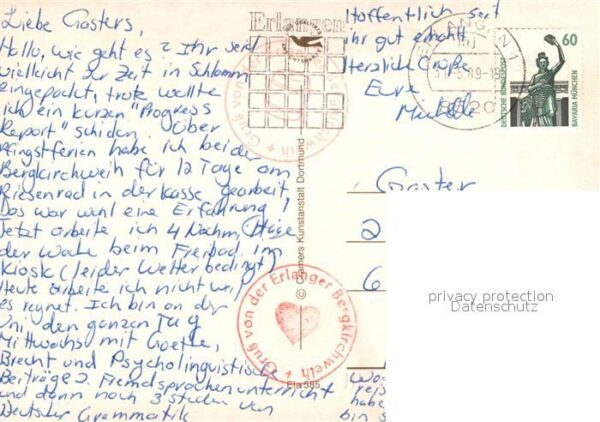 Liebe Gasters,
Hallo, wie geht es? Ihr seid
vielleicht zur Zeit in Schlamm
eingepackt, trotz wollte
ich ein kurzen "Progress
Report" schiden. Über
Pfingstferien habe ich bei der
Bergkirchweih für 12 Tage am
Riesenrad in der Kasse gearbeit
Das war wohl eine Erfahrung!
Jetzt arbeite ich 4 Nachm.
der Woche beim Freibad im
Kiosk (leider Wetter bedingt)
Heute arbeite ich nicht weil
es regnet. Ich bin an der
Uni, den ganzen Tag
Mittwochs mit Goethe,
Brecht und Psycholinguistische
Beiträge z. Fremdsprachenunterricht
und dann noch 3 Studen von
Deutscher Grammatik
Hoffentlich seit
ihr gut erholt
Herzliche Grüße
Eure
Erlangen
ERLANGEN 1
8520
60
DEUTSCHE BUNDESPOST
BAVARIA MÜNCHEN
Gruß von der Erlanger Bergkirchweih
© Cramers Kunstanstalt Dortmund
Gaster
2
6
privacy protection
Datenschutz
Gruß von der Erlanger Bergkirchweih
Ela 585
habe
bin s